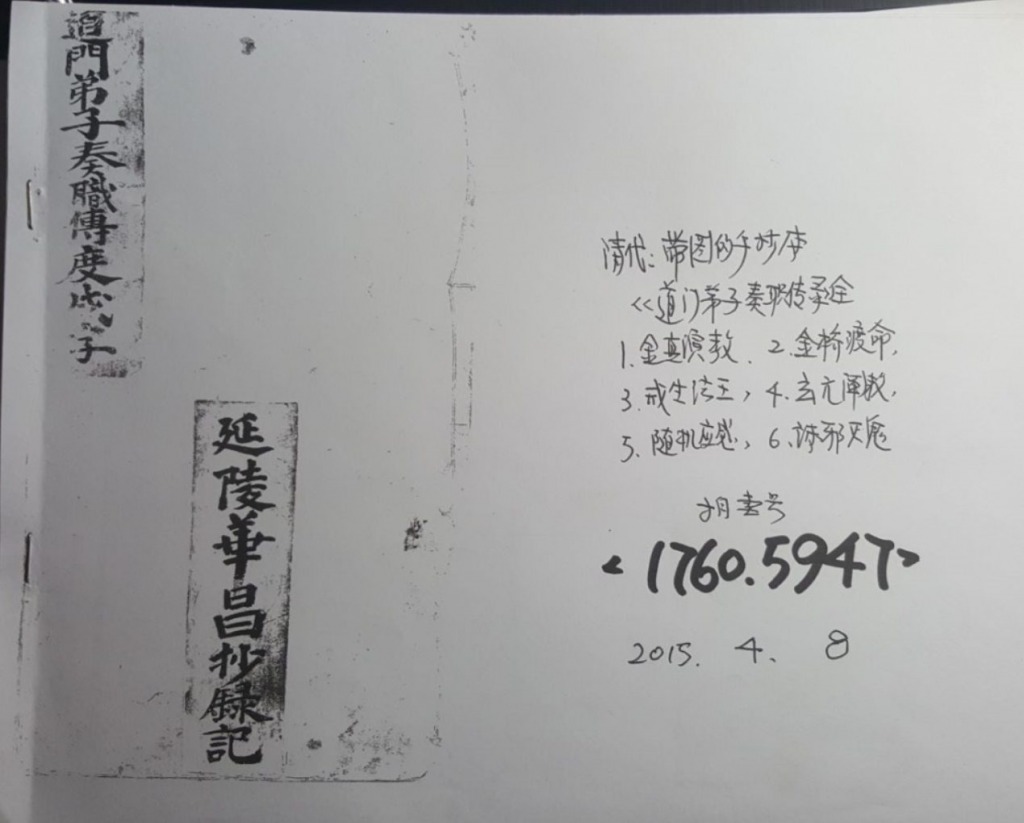 道門弟子奏職傳度戊子
延陵華昌抄錄記
清代:带图的手抄本
<<道门弟子奏职传录全
1.金真演教. 2.金桥渡命,
3.戒生法王, 4.玄元阐教,
5.随机应感, 6.诛邪灭鬼
书号
<1760.5947>
2015. 4. 8